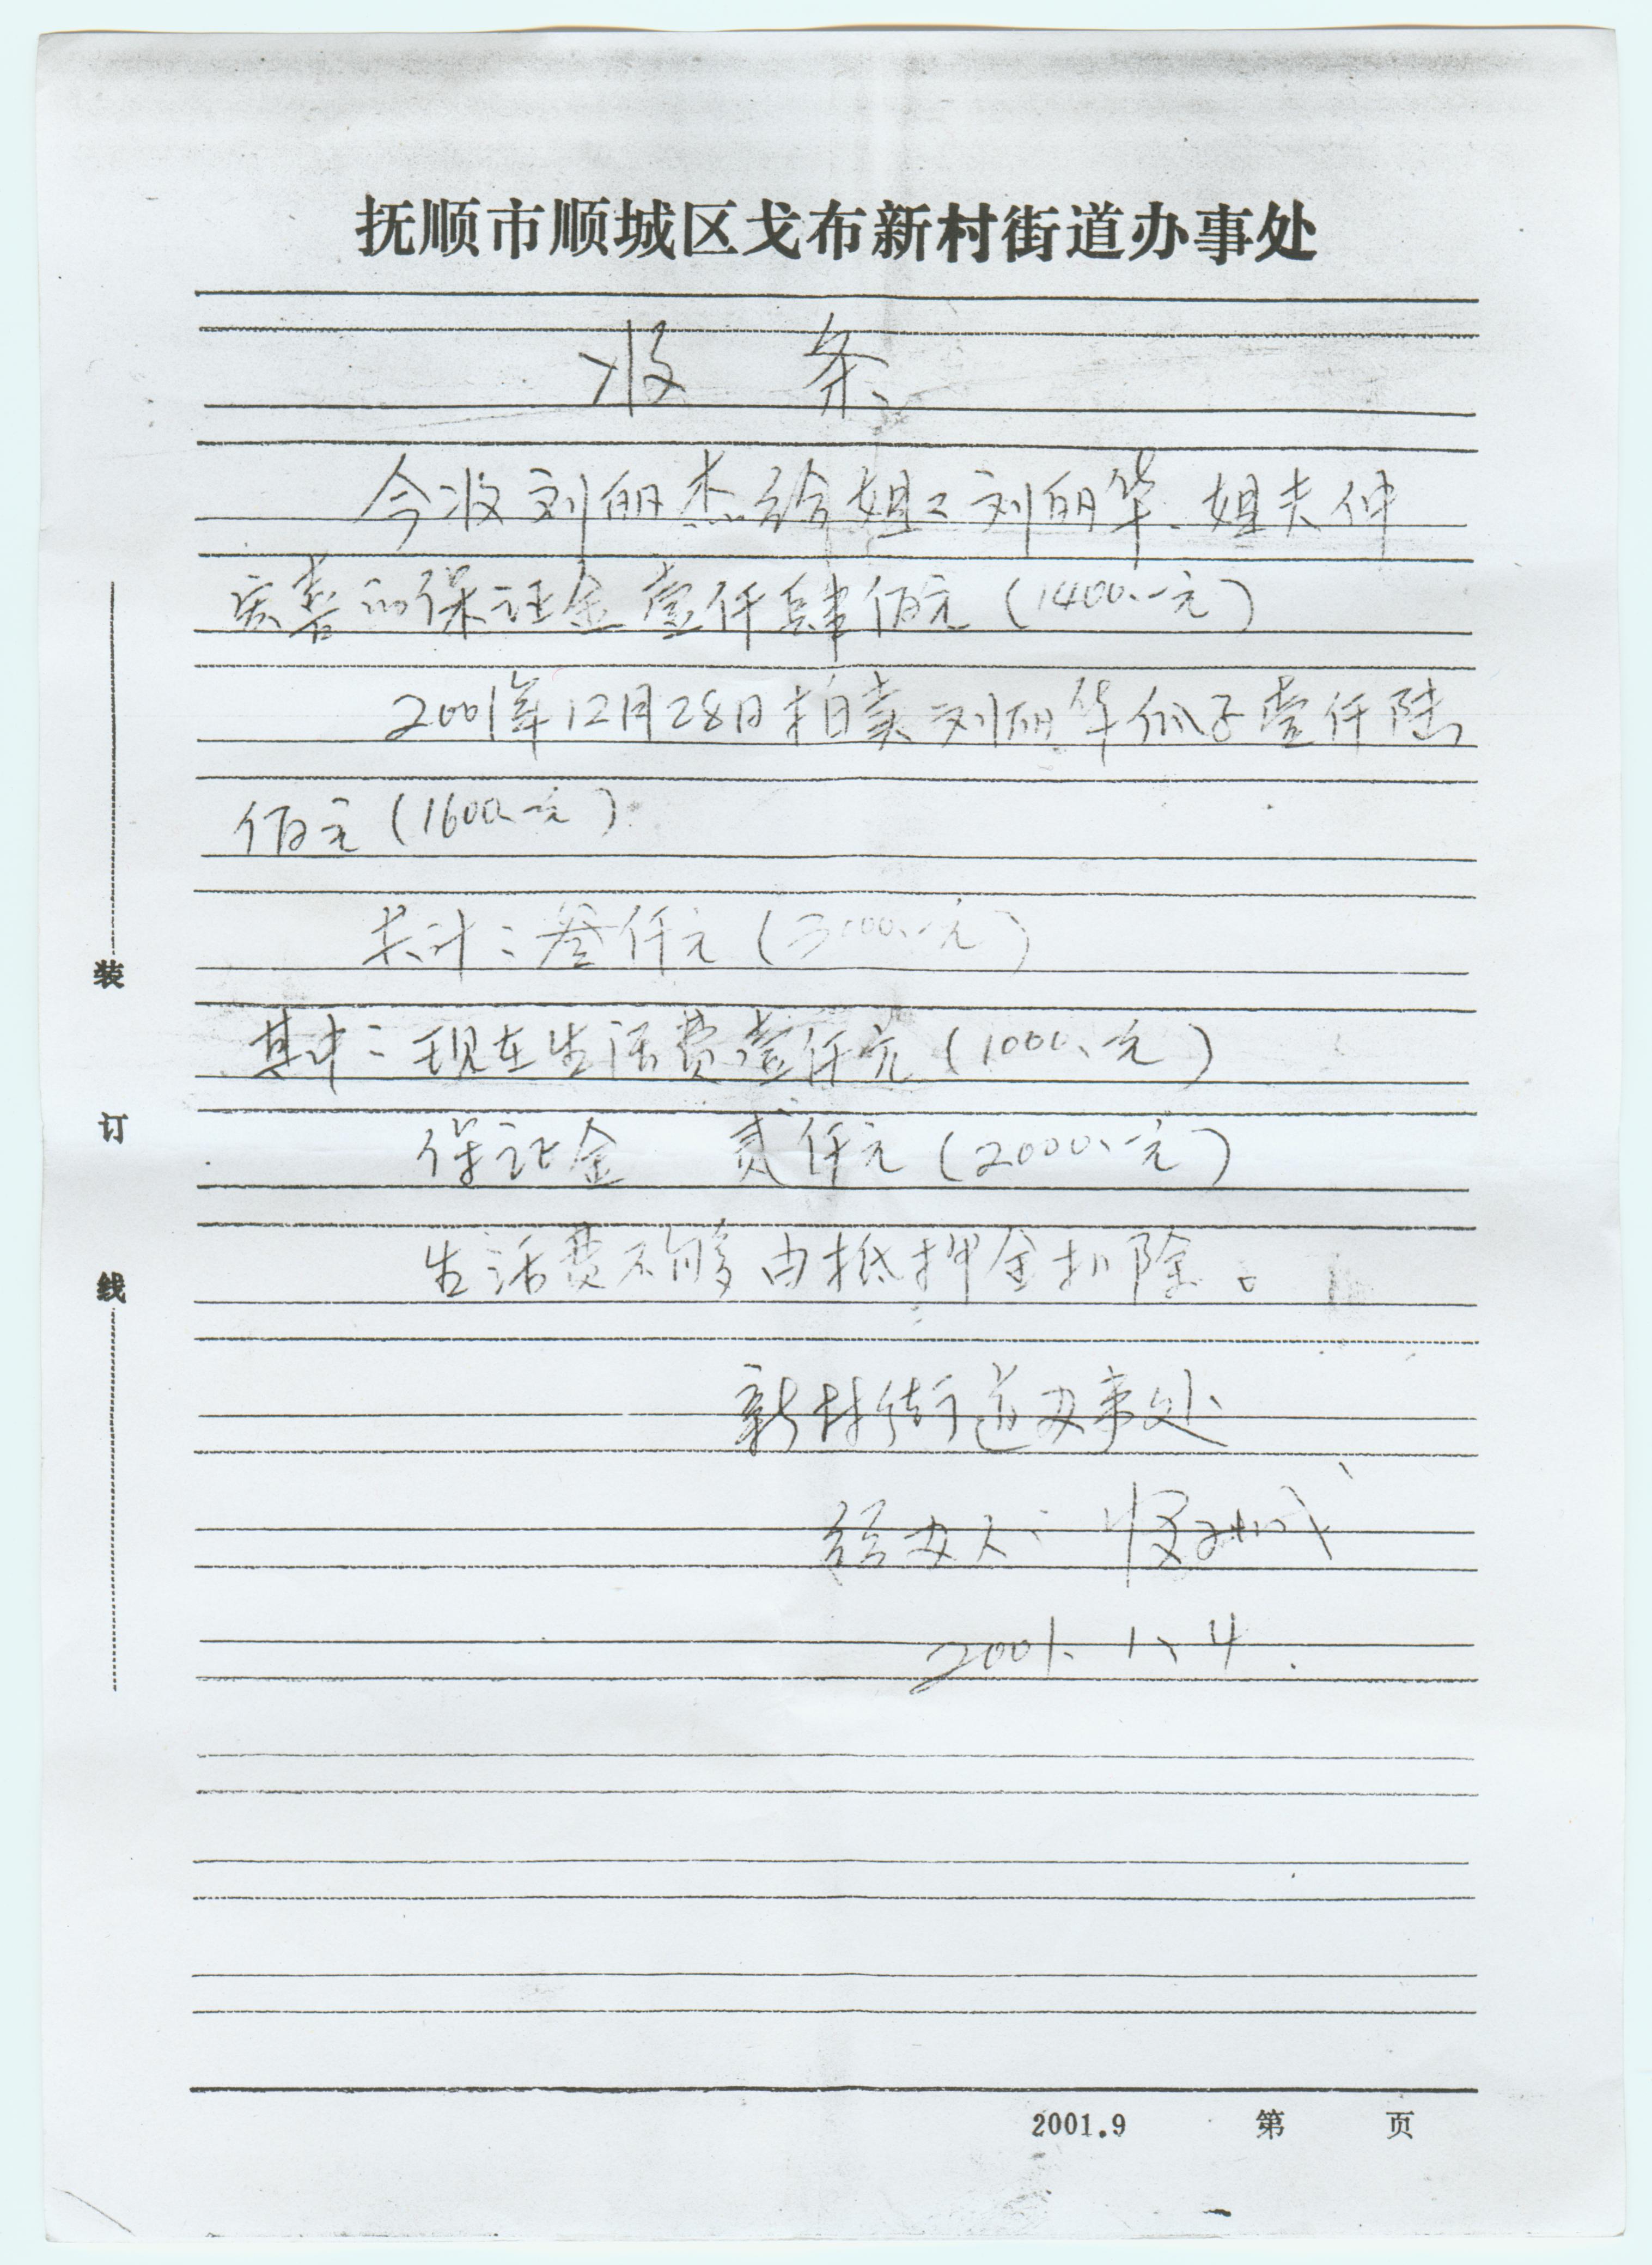 抚顺市顺城区戈布新村街道办事处
收 条
今收刘丽杰给姐姐刘丽华、姐夫仲
实善的保证金壹仟肆佰元(1400.-元)
2001年12月28日拍卖刘丽华瓜子壹仟陆
佰元(1600.-元)
共计:叁仟元(3000.-元)
其中:现在生活费壹仟元(1000.元)
保证金 贰仟元(2000.-元)
生活费不够由抵押金扣除。
新村街道办事处
经办人:
2001.1.4.
装
订
线
2001.9 第 页